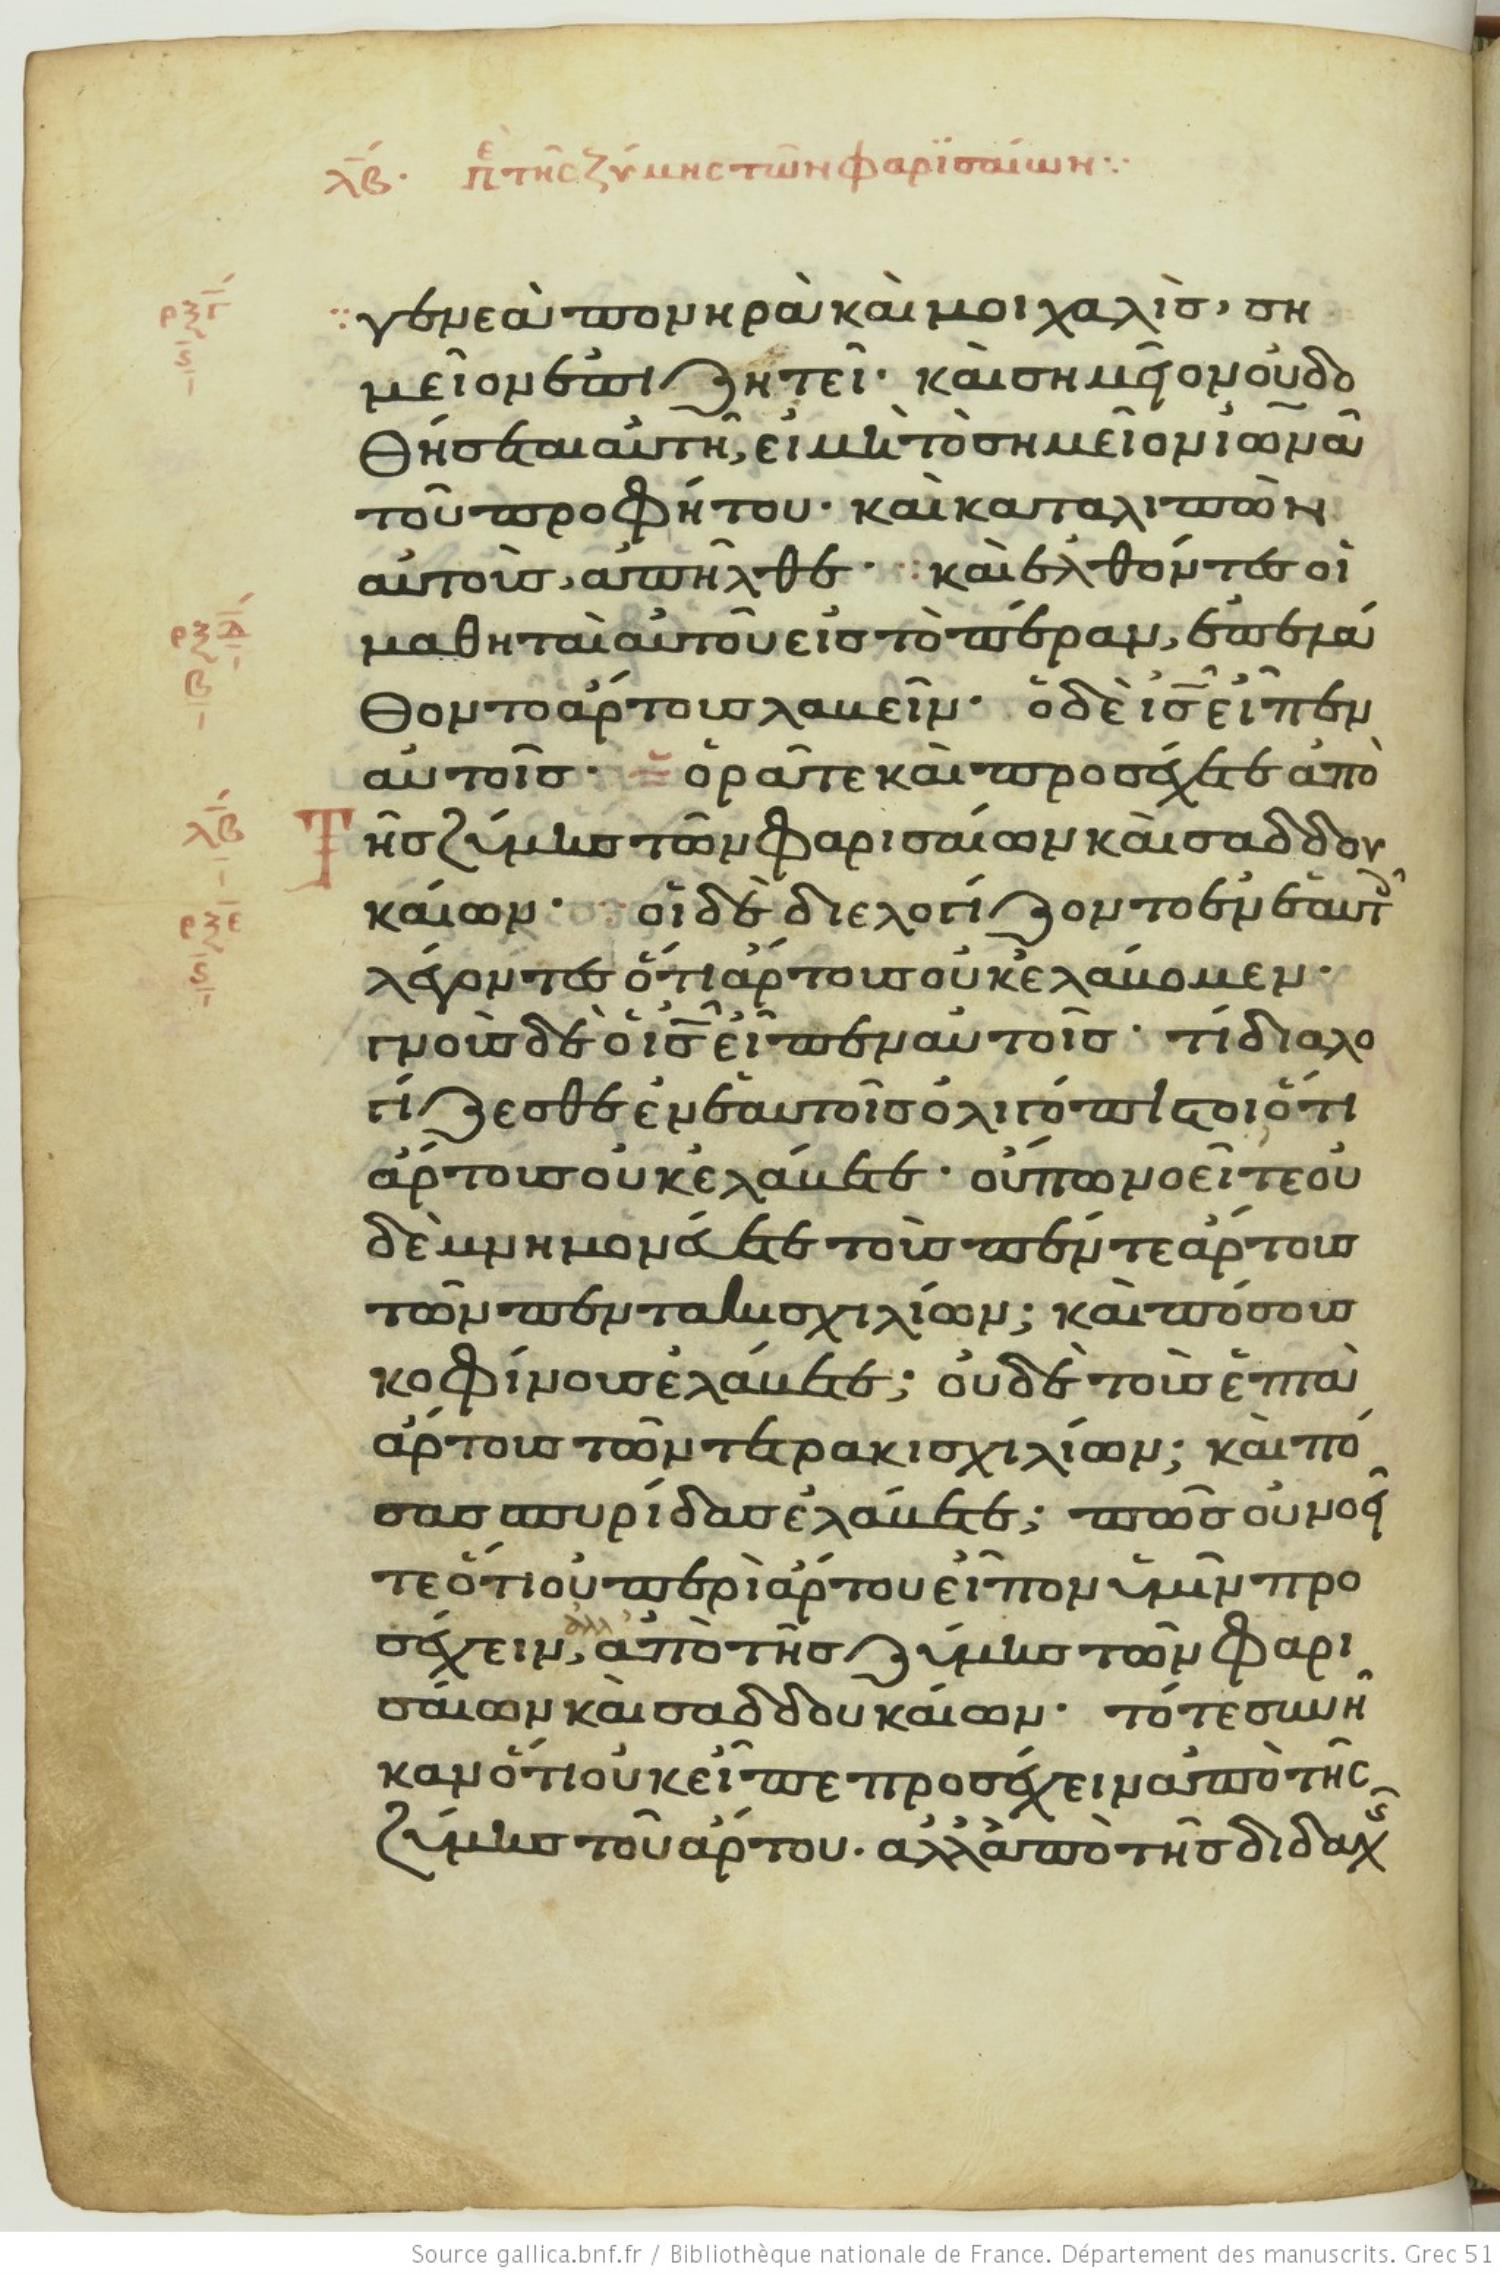 λβ· πε τῆς ζύμης τῶν φαρϊσαίων:·
ρξγ
ς
γενεὰ πονηρὰ καὶ μοιχαλὶσ, ση
μεῖον ἐπιζητεῖ· καὶ σημεῖον οὐ δο
θήσεται αὐτῆ, εἰ μὴ τὸ σημεῖον ἰωνᾶ
τοῦ προφήτου· καὶ καταλιπὼν
αὐτοὺσ, ἀπῆλθε· καὶ ἐλθόντεσ οἱ
ρξδ
β
μαθηταὶ αὐτοῦ εἰσ τὸ πέραν, ἐπελά
θοντο ἄρτουσ λαβεῖν· ὁ δὲ ἰσ εἶπεν
αὐτοῖσ· ὁρᾶτε καὶ προσέχετε ἀπὸ
λβ
Τῆσ ζύμησ τῶν φαρισαίων καὶ σαδδου
ρξε
ς
καίων· οἱ δὲ διελογίζοντο ἐν ἑαυτ
λέγοντεσ ὅτι ἄρτουσ οὐκ ἐλάβομεν·
γνοὺσ δὲ ὁ ἰσ εἶπεν αὐτοῖσ· τί διαλο
γίζεσθε ἐν ἑαυτοῖσ ὀλιγόπιστοι ὅτι
ἄρτουσ οὐκ ἐλάβετε· οὔπω νοεῖτε οὐ
δὲ μνημονεύετε τοὺσ πέντε ἄρτουσ
τῶν πεντακισχιλίων; καὶ πόσουσ
κοφίνουσ ἐλάβετε; οὐδὲ τοὺσ ἑπτὰ
ἄρτουσ τῶν τετρακισχιλίων; καὶ πό
σασ σπυρίδασ ἐλάβετε; πῶσ οὐ νοεῖ
τε ὅτι οὐ περὶ ἄρτου εἶπον ὑμῖν προ
ἀλλ
σέχειν, ἀπὸ τῆσ ζύμησ τῶν φαρι
σαίων καὶ σαδδουκαίων· τότε συνῆ
καν ὅτι οὐκ εἶπε προσέχειν ἀπὸ τῆς
ζύμησ τοῦ ἄρτου. ἀλλὰ ἀπὸ τῆσ διδαχῆς
Source gallica.bnf.fr / Bibliothèque nationale de France. Département des manuscrits. Grec 51